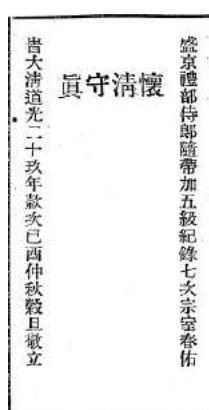 盛京禮部侍郎隨帶加五級紀錄七次宗室春佑
懷清守眞
旹大淸道光二十玖年歲次己酉仲秋穀旦敬立